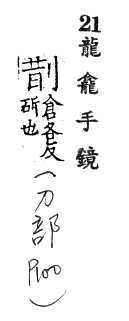 21龍龕手鏡
剒倉各反
斫也
(刀部 P100)